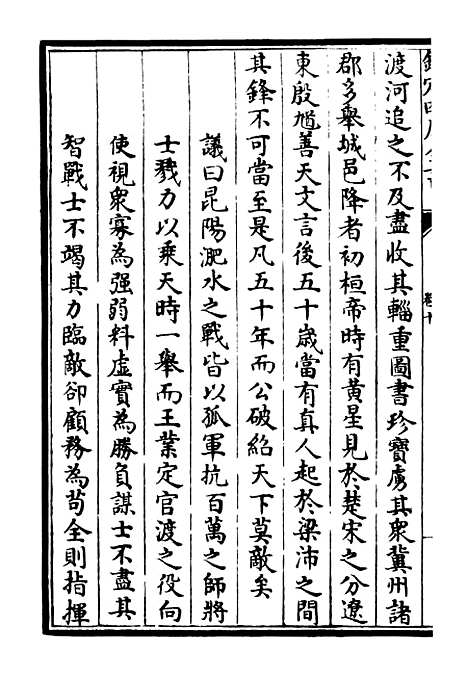 渡河追之不及盡收其輜重圖書珍寶虜其衆冀州諸
郡多舉城邑降者初桓帝時有黄星見於楚宋之分遼
東殷馗善天文言後五十歲當有真人起於梁沛之間
其鋒不可當至是凡五十年而公破紹天下莫敵矣
議曰昆陽淝水之戰皆以孤軍抗百萬之師將
士戮力以乗天時一舉而王業定官渡之役向
使視衆寡為强弱料虚實為勝負謀士不盡其
智戰士不竭其力臨敵卻顧務為苟全則指揮